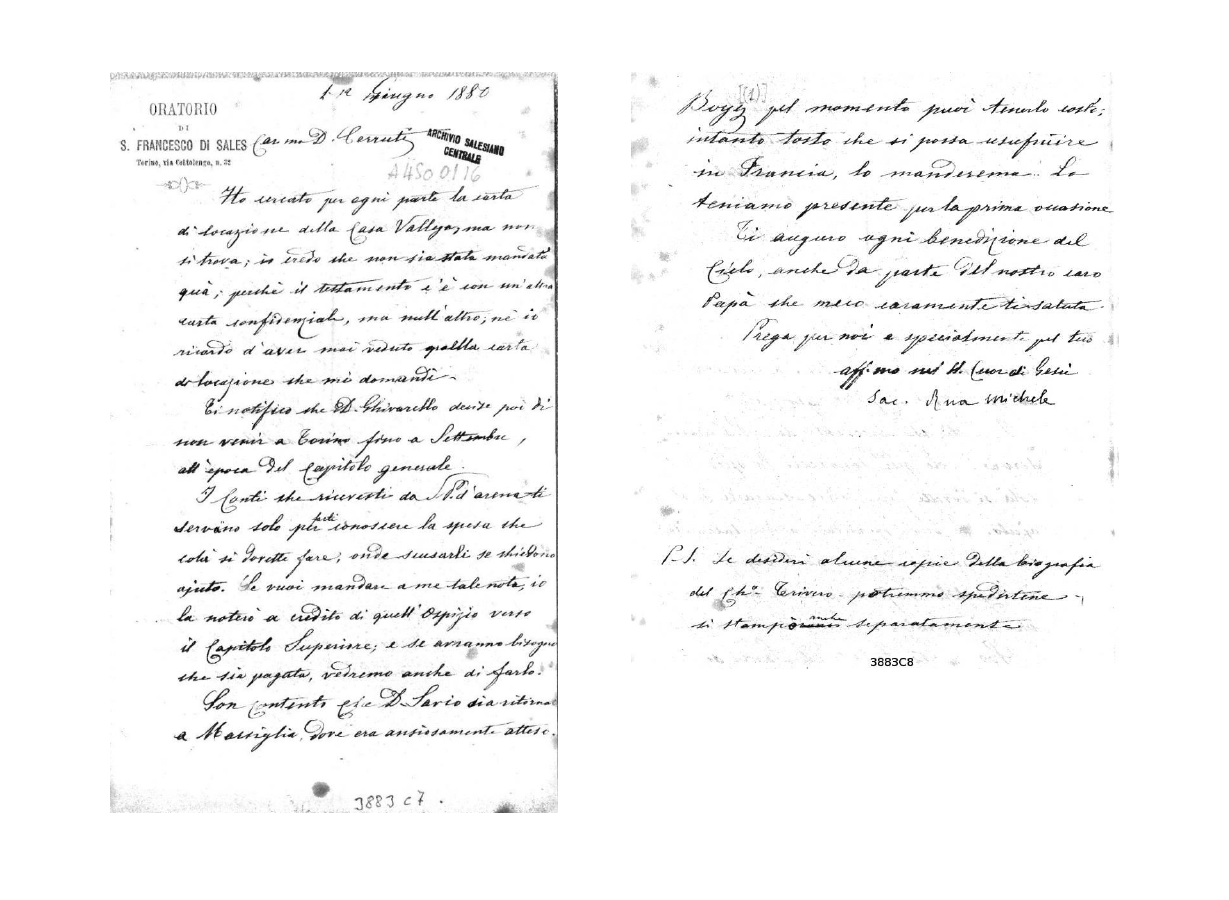 1 n Giugno 1880
ORATORIO
DI
S. FRANCESCO DI SALES
Torino, via Cottolengo, n. 32
Car mo D. Cerruti
ARCHIVIO SALESIANO
CENTRALE
A4500116
Ho cercato per ogni parte la carta
di locazione della Casa Vallega, ma non
si trova; io credo che non sia stata mandata
quà; perchè il testamento c'è con un'altra
carta confidenziale, ma null'altro; nè io
ricordo d'aver mai veduto quella carta
di locazione che mi domandi.
Ti notifico che D. Ghivarello decise poi di
non venir a Torino fino a Settembre,
all'epoca del Capitolo generale.
I Conti che ricevesti da S. P. d'arena ti
servano solo per farti conoscere la spesa che
colà si dovette fare; onde scusarli se chiedono
ajuto. Se vuoi mandare a me tale nota, io
la noterò a credito di quell'Ospizio verso
il Capitolo Superiore; e se avranno bisogno
che sia pagata, vedremo anche di farlo.
Son contento che D. Savio sia ritornato
a Marsiglia, dove era ansiosamente atteso.
3883 C7.
[(1)]
pel momento puoi tenerlo costì;
intanto tosto che si possa usufruire
in Francia, lo manderemo. Lo
teniamo presente per la prima occasione
Ti auguro ogni benedizione del
Cielo, anche da parte del nostro caro
Papà che meco caramente ti saluta
Prega per noi e specialmente pel tuo
aff.mo nel S. Cuor di Gesù
Sac. Rua Michele
P.S. Se desideri alcune copie della biografia
del Ch.o Trivero potremmo spedirtene
si stampò separatamente
3883C8